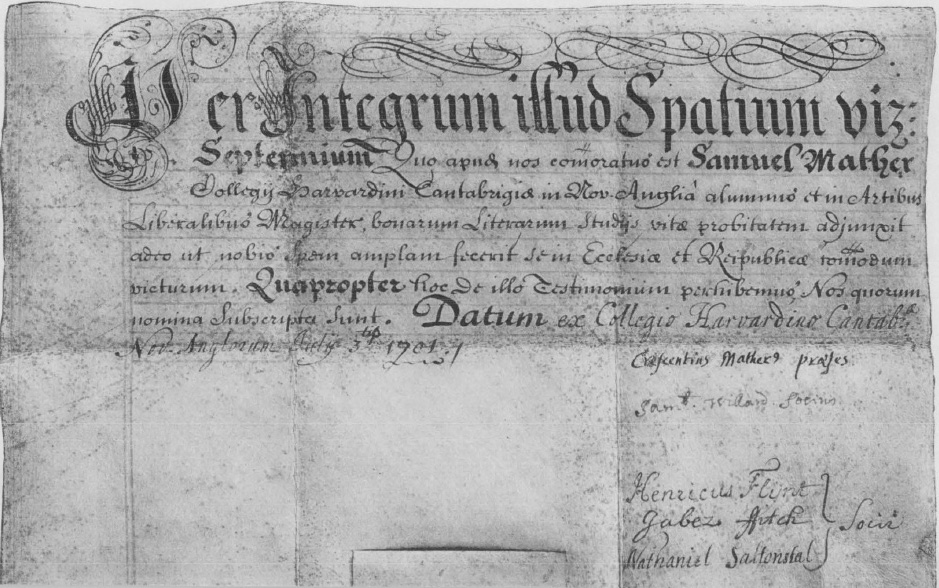 Per Integrum illud Spatium viz:
Septennium Quo apud nos com̄oratus est Samuel Mather
Collegij Harvardini Cantabrigiæ in Nov-Angliâ alumnus et in Artibus
Liberalibus Magister, bonarum Literarum Studijs vitæ probitatem adjunxit
adeo ut nobis Spem amplam fecerit Se in Ecclesiæ et Reipublicæ com̄odum
victurum. Quapropter hoc de illo Testimonium perhibemus Nos quorum
nomina Subscripta Sunt. Datum ex Collegio Harvardino Cantab:
Nov-Anglorum July 3 1701
Crescentius Matherus præses.
Sam.ll Willard Socius
Henricus Flynt
Jabez ffitch } Socii
Nathaniel Saltonstal